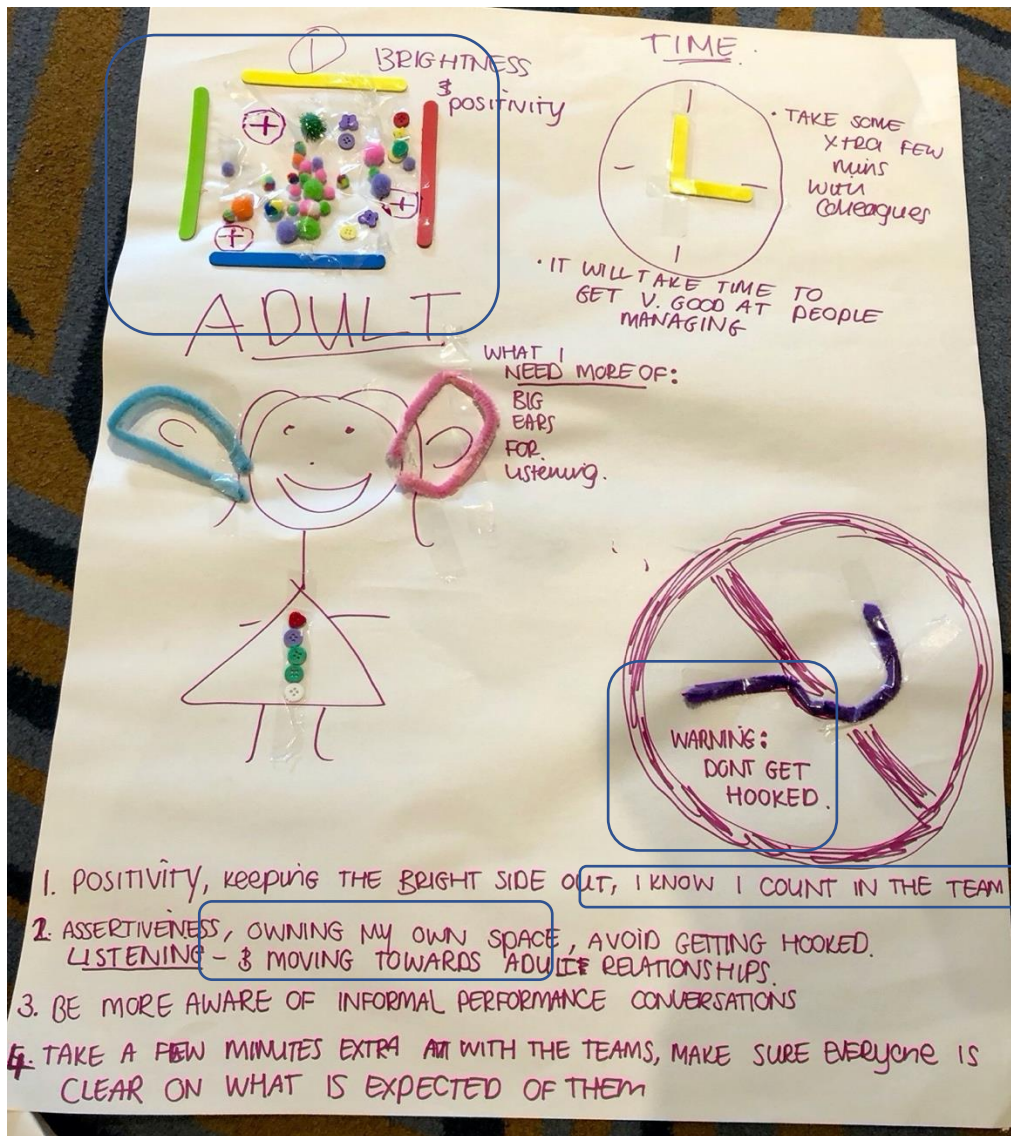 1
BRIGHTNESS
& positivity
+
+
+
ADULT
TIME.
• TAKE SOME
XTRA FEW
mins
with
colleagues
• IT WILL TAKE TIME TO
GET V. GOOD AT PEOPLE
MANAGING
WHAT I
NEED MORE OF:
BIG
EARS
FOR
Listening.
WARNING:
DONT GET
HOOKED.
1. POSITIVITY, KEEPING THE BRIGHT SIDE OUT, I KNOW I COUNT IN THE TEAM
2. ASSERTIVENESS, OWNING MY OWN SPACE, AVOID GETTING HOOKED.
LISTENING – & MOVING TOWARDS ADULT RELATIONSHIPS.
3. BE MORE AWARE OF INFORMAL PERFORMANCE CONVERSATIONS
4. TAKE A FEW MINUTES EXTRA WITH THE TEAMS, MAKE SURE EVERYONE IS
CLEAR ON WHAT IS EXPECTED OF THEM